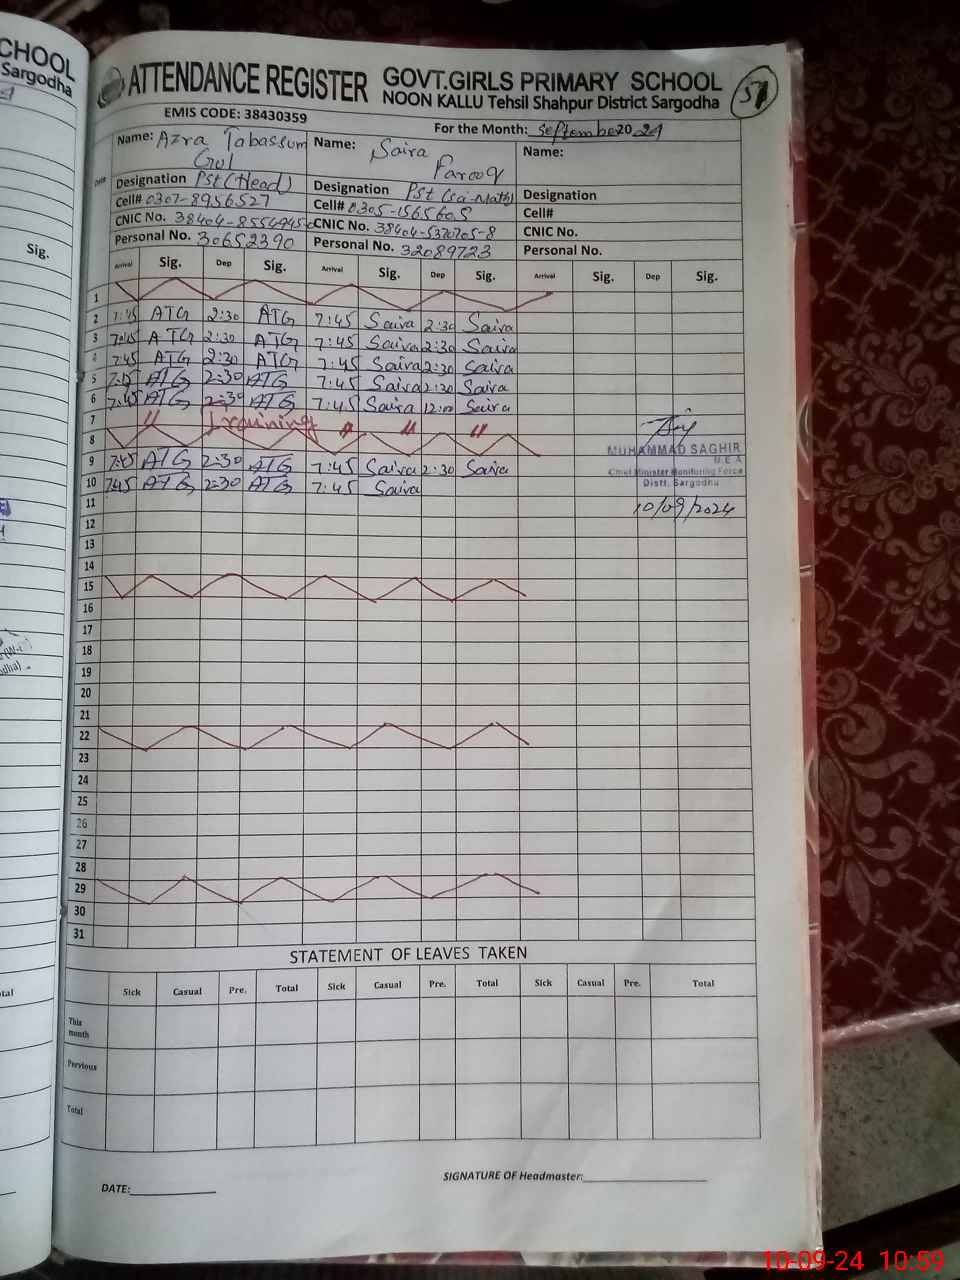 CHOOL
Sargodha
Sig.
ATTENDANCE REGISTER GOVT.GIRLS PRIMARY SCHOOL
NOON KALLU Tehsil Shahpur District Sargodha
51
EMIS CODE: 38430359
For the Month: September 2024
Name: Azra Tabassum Gul Name: Saira Farooq Name:
Designation Pst (Head) Designation Pst (Sci-Math) Designation
Cell# 0307-8956527 Cell# 0305-1565605 Cell#
CNIC No. CNIC No. 38404-5370705-8 CNIC No.
Personal No. 30652390 Personal No. 32089723 Personal No.
Date Arrival Sig. Dep Sig. Arrival Sig. Dep Sig. Arrival Sig. Dep Sig.
1
2 7:45 ATG 2:30 ATG 7:45 Saira 2:30 Saira
3 7:45 ATG 2:30 ATG 7:45 Saira 2:30 Saira
4 7:45 ATG 2:30 ATG 7:45 Saira 2:30 Saira
5 7:45 ATG 2:30 ATG 7:45 Saira 2:30 Saira
6 7:45 ATG 2:30 ATG 7:45 Saira 12:00 Saira
7 " Trquining " " "
8
MUHAMMAD SAGHIR
M.E.A
9 7:45 ATG 2:30 ATG 7:45 Saira 2:30 Saira
Chief Minister Monitoring Force
10 7:45 ATG 2:30 ATG 7:45 Saira
Distt. Sargodha
11
10/09/2024
12
13
14
15
16
17
18
19
20
21
22
23
24
25
26
27
28
29
30
31
STATEMENT OF LEAVES TAKEN
Sick Casual Pre. Total Sick Casual Pre. Total Sick Casual Pre. Total
This month
Pervious
Total
DATE: SIGNATURE OF Headmaster:
10-09-24 10:59